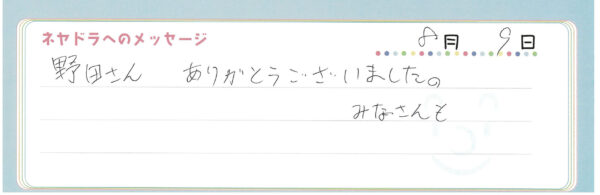 ネヤドラへのメッセージ
8月 9日
野田さん ありがとうございました。
みなさんも